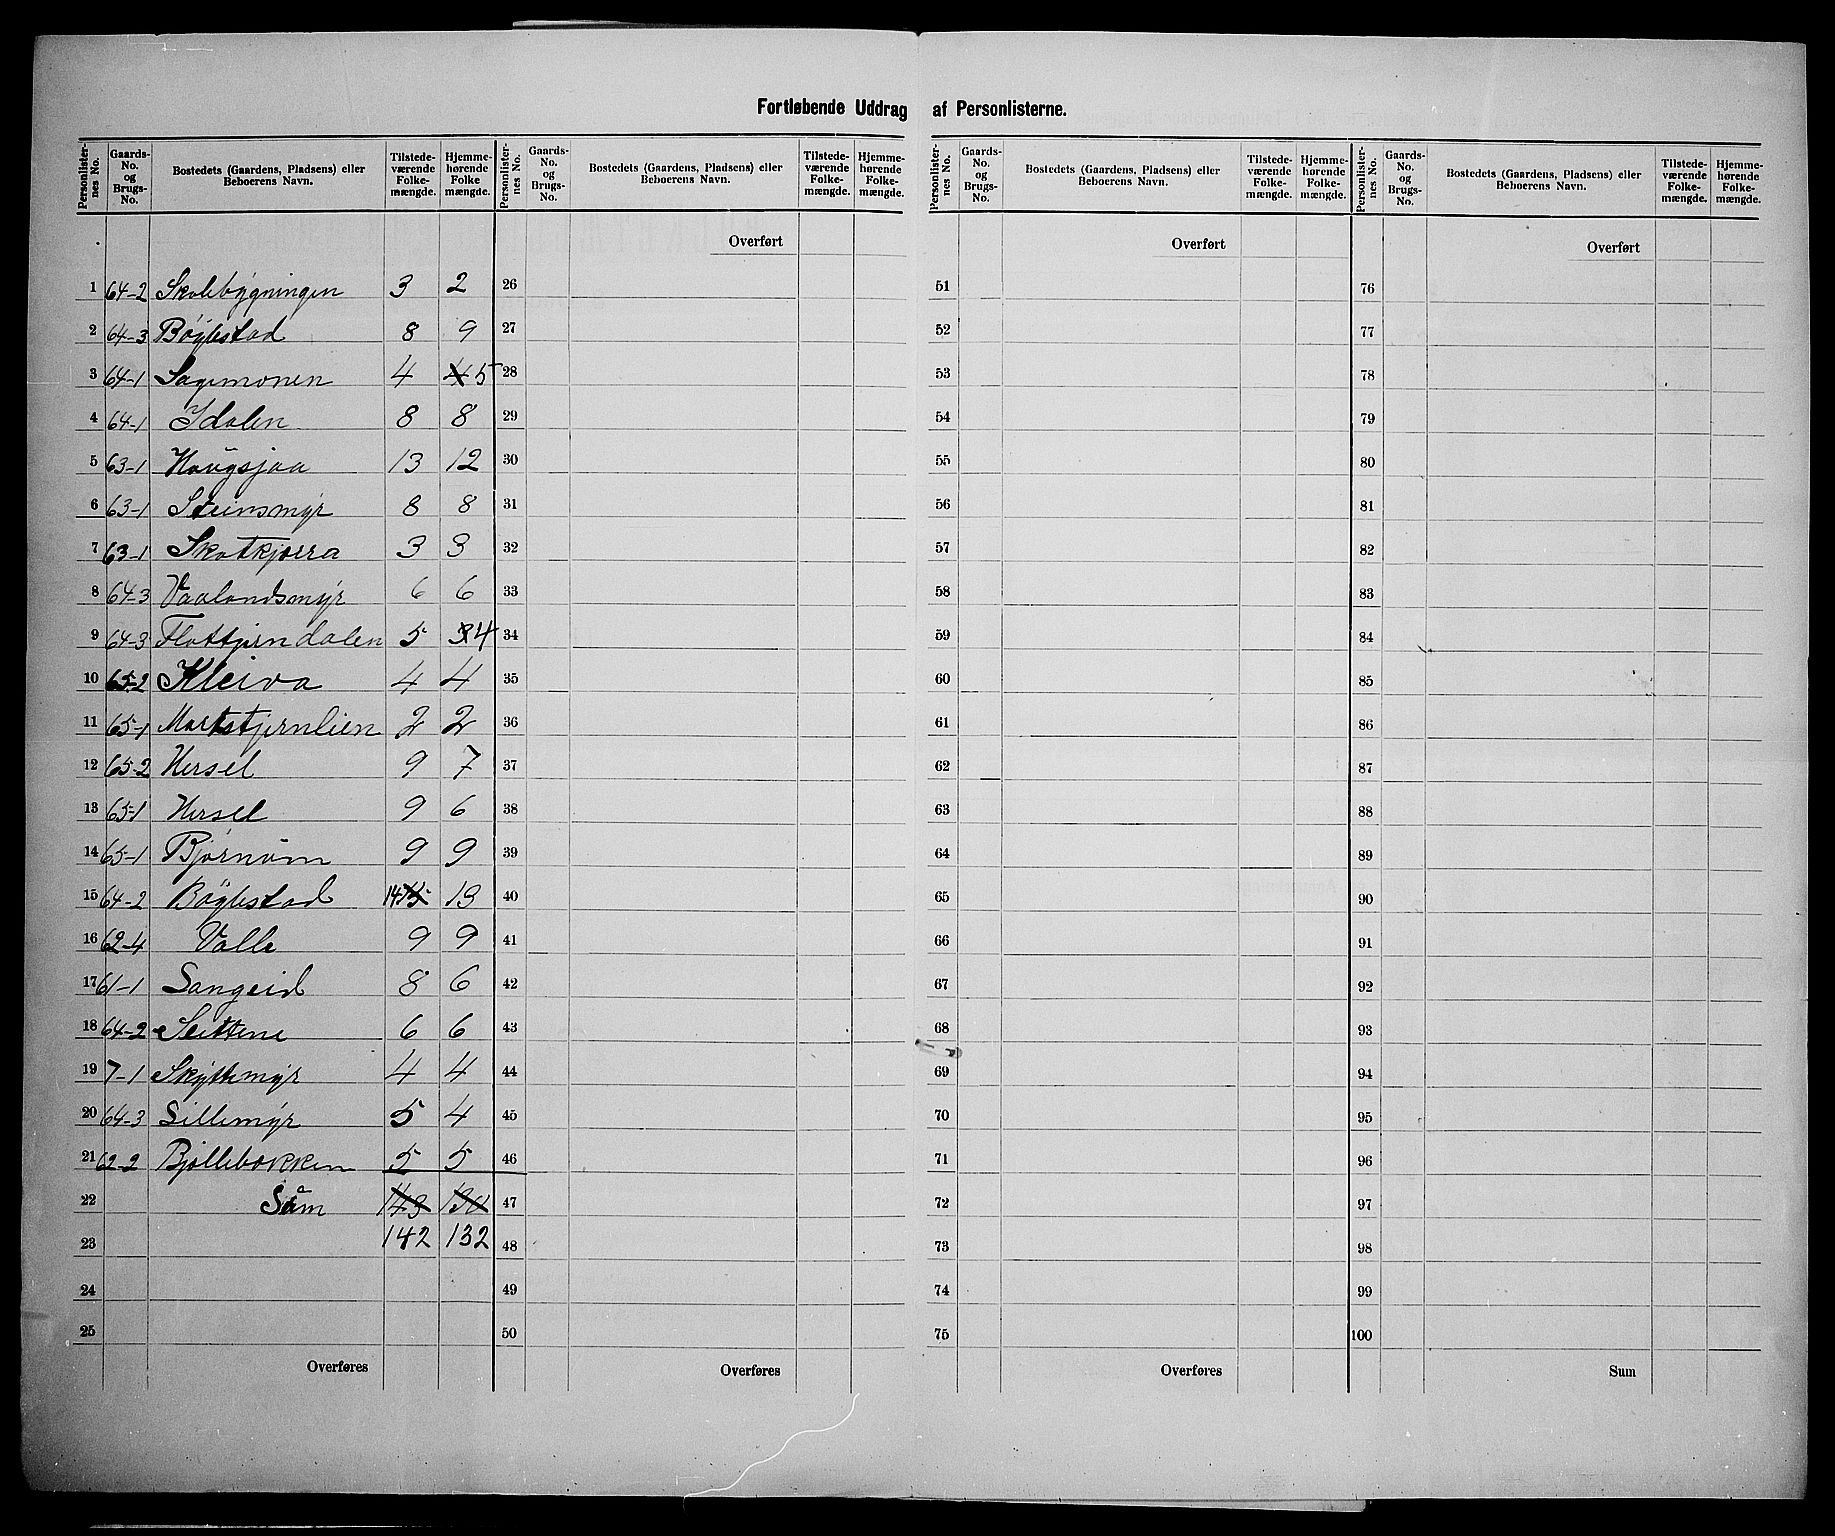 Fortløbende Uddrag af Personlisterne.
Personlister-nes No. Gaards-No. og Brugs-No. Bostedets (Gaardens, Pladsens) eller Beboerens Navn. Tilstede-værende Folke-mængde. Hjemme-hørende Folke-mængde. Personlister-nes No. Gaards-No. og Brugs-No. Bostedets (Gaardens, Pladsens) eller Beboerens Navn. Tilstede-værende Folke-mængde. Hjemme-hørende Folke-mængde. Personlister-nes No. Gaards-No. og Brugs-No. Bostedets (Gaardens, Pladsens) eller Beboerens Navn. Tilstede-værende Folke-mængde. Hjemme-hørende Folke-mængde. Personlister-nes No. Gaards-No. og Brugs-No. Bostedets (Gaardens, Pladsens) eller Beboerens Navn. Tilstede-værende Folke-mængde. Hjemme-hørende Folke-mængde.
Overført Overført Overført
1 64-2 Skolebygningen 3 2 26 51 76
2 64-3 Bøylestad 8 9 27 52 77
3 64-1 Sagemonen 4 4 5 28 53 78
4 64-1 Idalen 8 8 29 54 79
5 63-1 Hougsjaa 13 12 30 55 80
6 63-1 Steinsmyr 8 8 31 56 81
7 63-1 Skotkjærra 3 3 32 57 82
8 64-3 Vaalandsmyr 6 6 33 58 83
9 64-3 Flottjerndalen 5 3 4 34 59 84
10 65-2 Kleiva 4 4 35 60 85
11 65-1 Martstjernlien 2 2 36 61 86
12 65-2 Hersel 9 7 37 62 87
13 65-1 Hersel 9 6 38 63 88
14 65-1 Bjørnom 9 9 39 64 89
15 64-2 Bøylestad 14 15 13 40 65 90
16 62-4 Valle 9 9 41 66 91
17 61-1 Sangeid 8 6 42 67 92
18 64-2 Slettene 6 6 43 68 93
19 7-1 Skyttemyr 4 4 44 69 94
20 64-3 Sillemyr 5 4 45 70 95
21 62-2 Bjellebækken 5 5 46 71 96
22 Sum 143 130 47 72 97
23 142 132 48 73 98
24 49 74 99
25 50 75 100
Overføres Overføres Overføres Sum